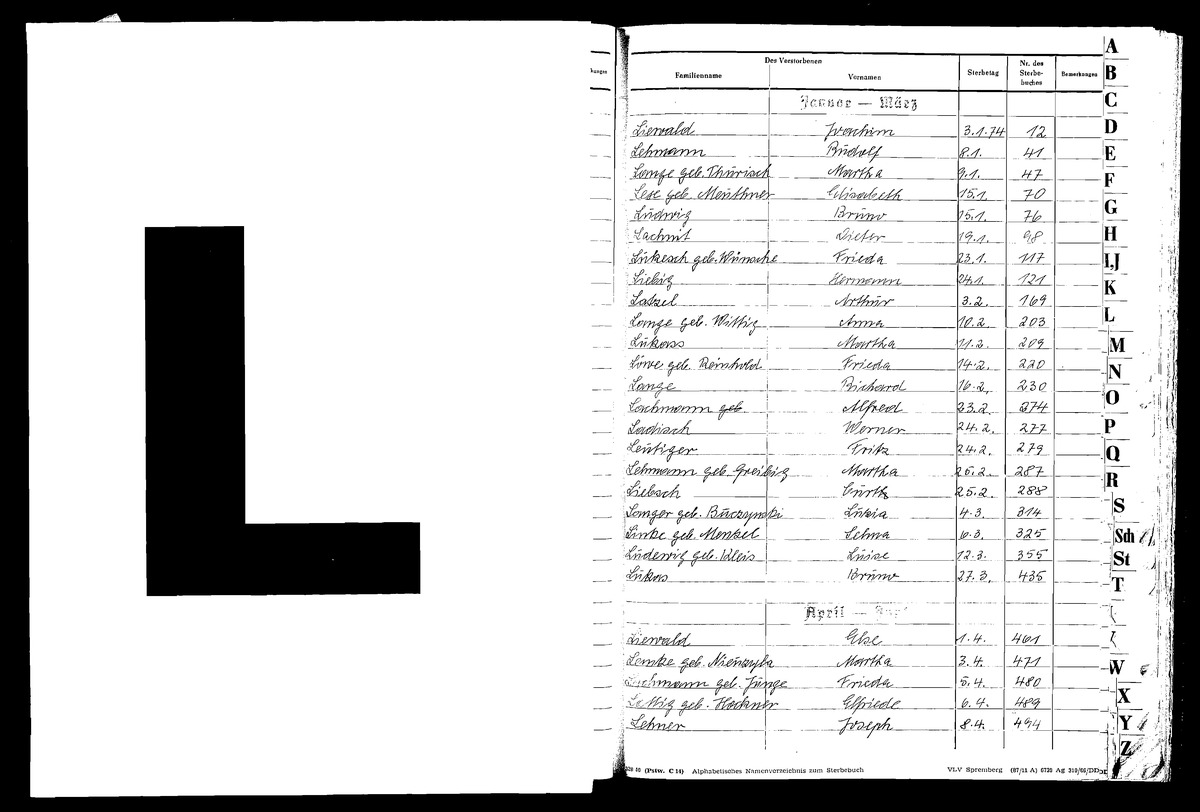 L
Des Verstorbenen
Familienname Vornamen Sterbetag Nr. des Sterbe- buches Bemerkungen
Januar — März
Liewald Joachim 3.1.74 12
Lehmann Rudolf 8.1. 41
Lange geb. Thürisch Martha 9.1. 47
Lese geb. Meuthner Elisabeth 15.1. 70
Ludwig Bruno 15.1. 76
Lachnit Dieter 19.1. 98
Lukesch geb. Wünsche Frieda 23.1. 117
Liebig Hermann 24.1. 121
Latzel Arthur 3.2. 169
Lange geb. Wittig Anna 10.2. 203
Lukass Martha 11.2. 209
Löwe geb. Reinhold Frieda 14.2. 220
Lange Richard 16.2. 230
Lachmann geb. Alfred 23.2. 274
Ladisch Werner 24.2. 277
Leutiger Fritz 24.2. 279
Lehmann geb. Greibig Martha 26.2. 287
Liebsch Curth 25.2. 288
Langer geb. Buczynski Luzia 4.3. 314
Linke geb. Menzel Selma 6.3. 325
Ludewig geb. Kleis Luise 12.3. 355
Lukas Bruno 27.3. 435
April —
Liewald Else 1.4. 461
Lemke geb. Nienzyla Martha 3.4. 471
Lachmann geb. Junge Frieda 5.4. 480
Lettig geb. Hackner Elfriede 6.4. 489
Lehner Joseph 8.4. 494
(Pstw. C 14) Alphabetisches Namenverzeichnis zum Sterbebuch VLV Spremberg (87/11 A) 6720 Ag 310/66/DD
A
B
C
D
E
F
G
H
I,J
K
L
M
N
O
P
Q
R
S
Sch
St
T
W
X
Y
Z